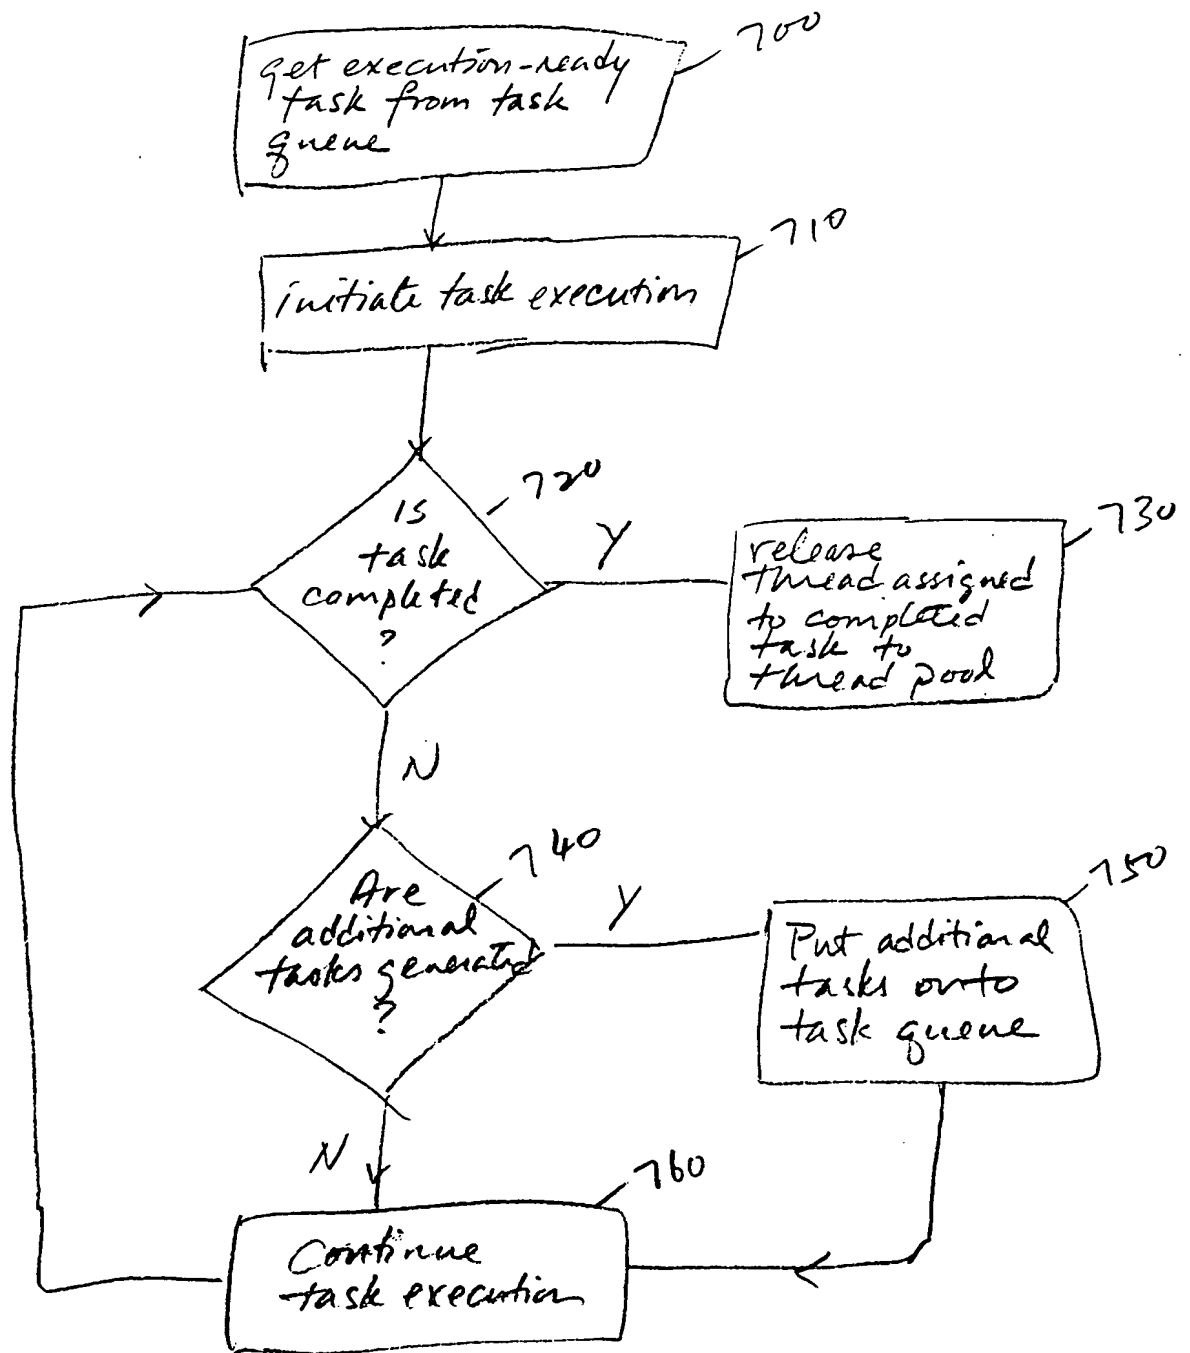 700
get execution-ready
task from task
queue
710
initiate task execution
720
Is
task
completed
?
Y
730
release
thread assigned
to completed
task to
thread pool
N
740
Are
additional
tasks generated
?
Y
750
Put additional
tasks onto
task queue
N
760
Continue
task execution